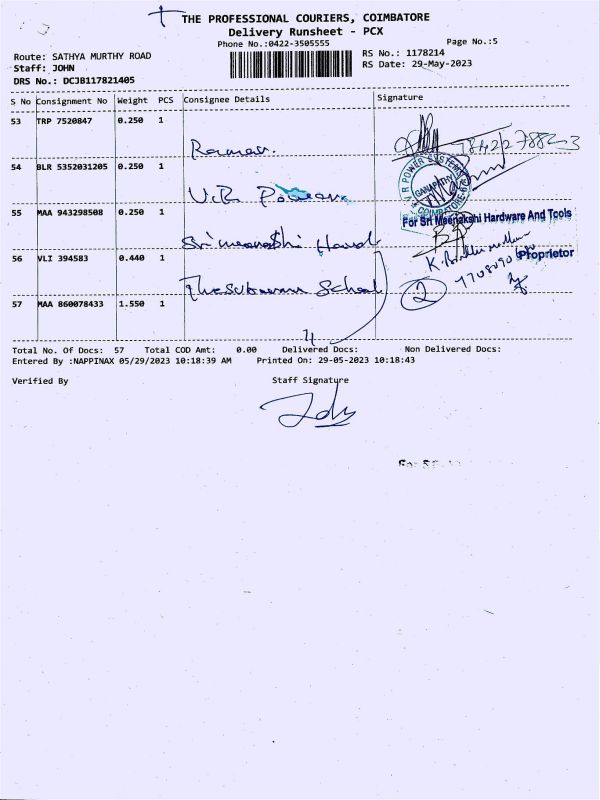 THE PROFESSIONAL COURIERS, COIMBATORE
Delivery Runsheet - PCX
Phone No.:0422-3505555
Page No.:5
Route: SATHYA MURTHY ROAD
Staff: JOHN
DRS No.: DCJB117821405
RS No.: 1178214
RS Date: 29-May-2023
S No Consignment No Weight PCS Consignee Details Signature
53 TRP 7520847 0.250 1
Raman.
54 BLR 5352031205 0.250 1
V.R. Power
V R POWER SYSTEMS
GANAPATHY
COIMBATORE
55 MAA 943298508 0.250 1
For Sri Meenakshi Hardware And Tools
Sri meenakshi Hard
56 VLI 394583 0.440 1
Proprietor
School
2
57 MAA 860078433 1.550 1
Total No. Of Docs: 57 Total COD Amt: 0.00 Delivered Docs: Non Delivered Docs:
Entered By :NAPPINAX 05/29/2023 10:18:39 AM Printed On: 29-05-2023 10:18:43
Verified By Staff Signature